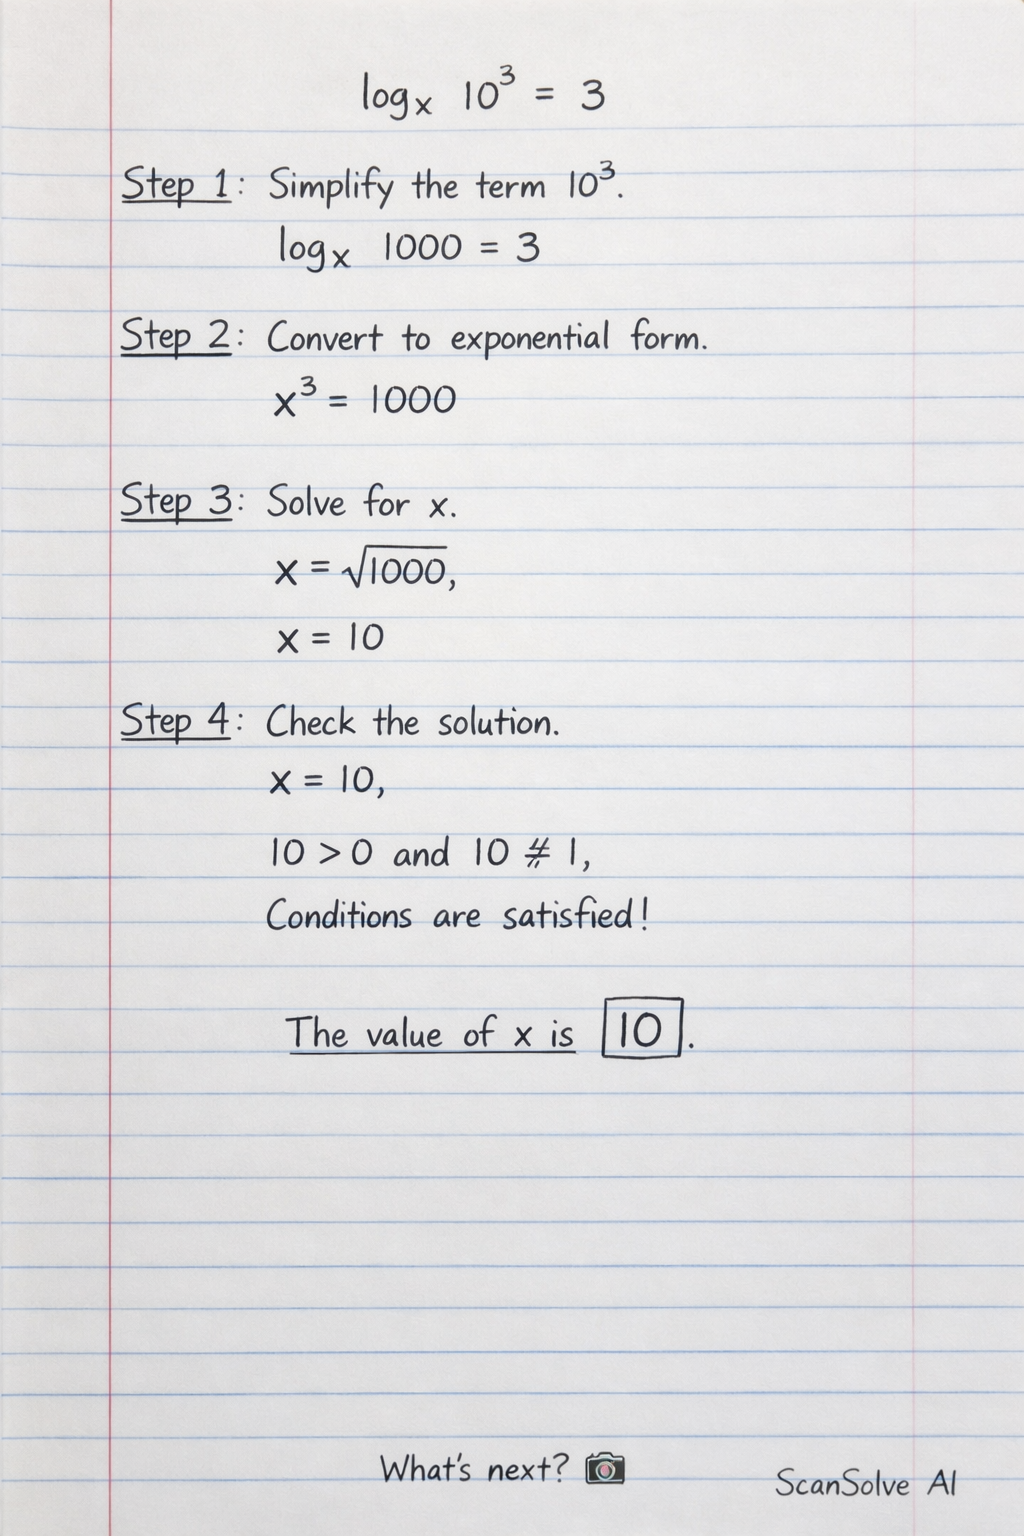 logₓ 10³ = 3
Step 1: Simplify the term 10³.
logₓ 1000 = 3
Step 2: Convert to exponential form.
x³ = 1000
Step 3: Solve for x.
x = √1000,
x = 10
Step 4: Check the solution.
x = 10,
10 > 0 and 10 ≠ 1,
Conditions are satisfied!
The value of x is 10.
What's next? 📷
ScanSolve AI